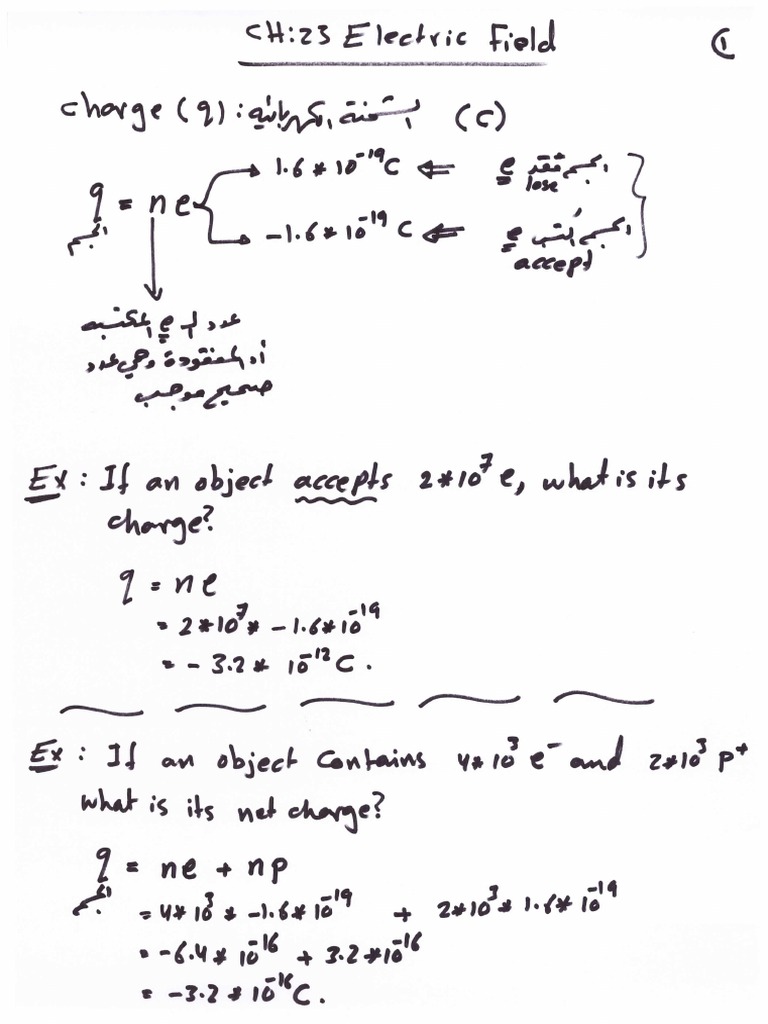 CH:23 Electric Field
1
charge (q): الشحنة الكهربائية (C)
1.6 * 10^-19 C ⇐ الجسم فقد e
lose
q = ne
الجسم
-1.6 * 10^-19 C ⇐ الجسم اكتسب e
accept
عدد الـ e المكتسبه
أو المفقودة وهي عدد
صحيح موجب
Ex: If an object accepts 2*10^7 e, what is its
charge?
q = ne
= 2*10^7 * -1.6*10^-19
= - 3.2 * 10^-12 C.
Ex: If an object contains 4*10^3 e^- and 2*10^3 p^+
what is its net charge?
q = ne + np
الجسم
= 4*10^3 * -1.6*10^-19 + 2*10^3 * 1.6*10^-19
= -6.4 * 10^-16 + 3.2*10^-16
= -3.2 * 10^-16 C.